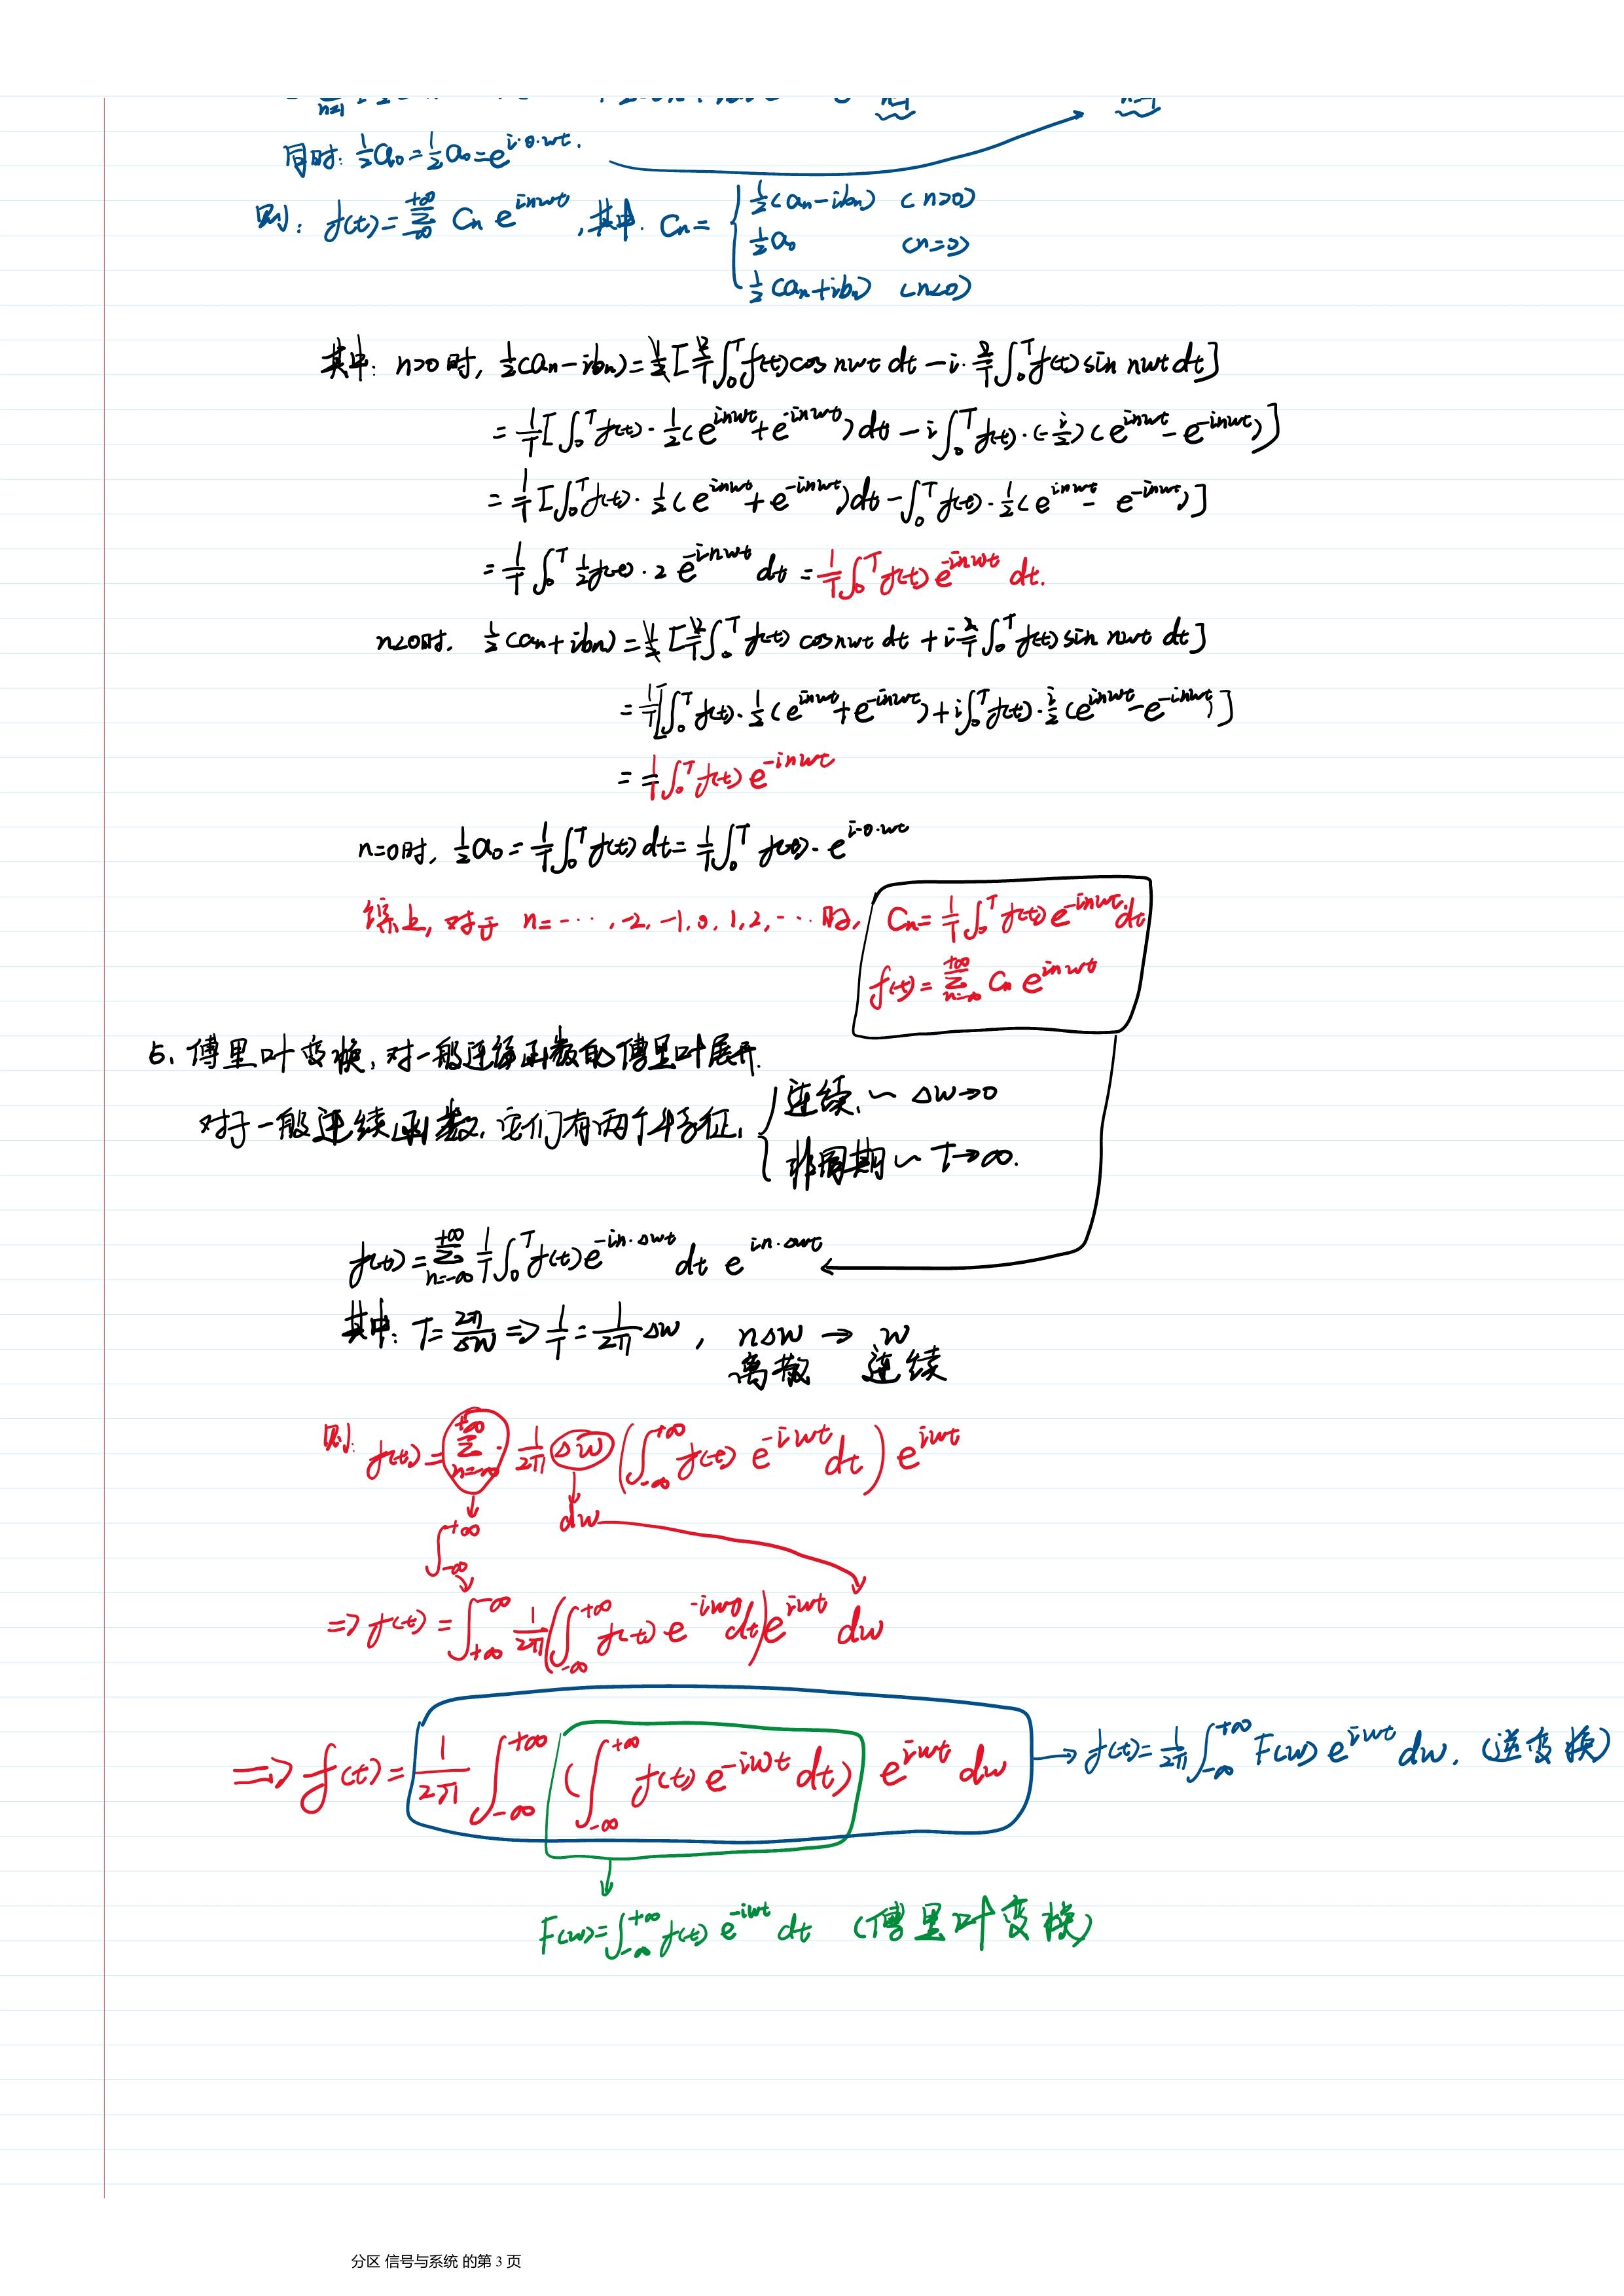 同时: ½a₀ = ½a₀ = e^{i·0·wt}.
则: f(t) = Σ_{-∞}^{+∞} Cₙ e^{inwt}, 其中. Cₙ = { ½(aₙ-ibₙ) (n>0)
½a₀ (n=0)
½(aₙ+ibₙ) (n<0)
其中: n>0时, ½(aₙ-ibₙ) = ½[2/T ∫₀ᵀ f(t) cos nwt dt - i·2/T ∫₀ᵀ f(t) sin nwt dt]
= 1/T [∫₀ᵀ f(t)·½(e^{inwt}+e^{-inwt})dt - i∫₀ᵀ f(t)·(-i/2)(e^{inwt}-e^{-inwt})]
= 1/T [∫₀ᵀ f(t)·½(e^{inwt}+e^{-inwt})dt - ∫₀ᵀ f(t)·½(e^{inwt}-e^{-inwt})]
= 1/T ∫₀ᵀ ½f(t)·2 e^{-inwt} dt = 1/T ∫₀ᵀ f(t) e^{-inwt} dt.
n<0时, ½(aₙ+ibₙ) = ½[2/T ∫₀ᵀ f(t) cos nwt dt + i 2/T ∫₀ᵀ f(t) sin nwt dt]
= 1/T [∫₀ᵀ f(t)·½(e^{inwt}+e^{-inwt}) + i∫₀ᵀ f(t)·i/2(e^{inwt}-e^{-inwt})]
= 1/T ∫₀ᵀ f(t) e^{-inwt}
n=0时, ½a₀ = 1/T ∫₀ᵀ f(t) dt = 1/T ∫₀ᵀ f(t)·e^{i·0·wt}
综上, 对于 n=····,-2,-1,0,1,2,···时, Cₙ = 1/T ∫₀ᵀ f(t) e^{-inwt} dt
f(t) = Σ_{n=-∞}^{+∞} Cₙ e^{inwt}
5. 傅里叶变换, 对一般连续函数的傅里叶展开.
对于一般连续函数, 它们有两个特征, { 连续 ~ Δw→0
非周期 ~ T→∞.
f(t) = Σ_{n=-∞}^{+∞} 1/T ∫₀ᵀ f(t) e^{-in·Δwt} dt e^{in·Δwt}
其中: T = 2π/Δw => 1/T = 1/2π Δw, nΔw → w
离散 连续
则: f(t) = Σ_{n=-∞}^{+∞} · 1/2π Δw (∫_{-∞}^{+∞} f(t) e^{-iwt} dt) e^{iwt}
∫_{-∞}^{+∞} dw
=> f(t) = ∫_{+∞}^{-∞} 1/2π (∫_{-∞}^{+∞} f(t) e^{-iwt} dt) e^{iwt} dw
=> f(t) = 1/2π ∫_{-∞}^{+∞} (∫_{-∞}^{+∞} f(t) e^{-iwt} dt) e^{iwt} dw → f(t) = 1/2π ∫_{-∞}^{+∞} F(w) e^{iwt} dw. (逆变换)
F(w) = ∫_{-∞}^{+∞} f(t) e^{-iwt} dt (傅里叶变换)
分区 信号与系统 的第 3 页